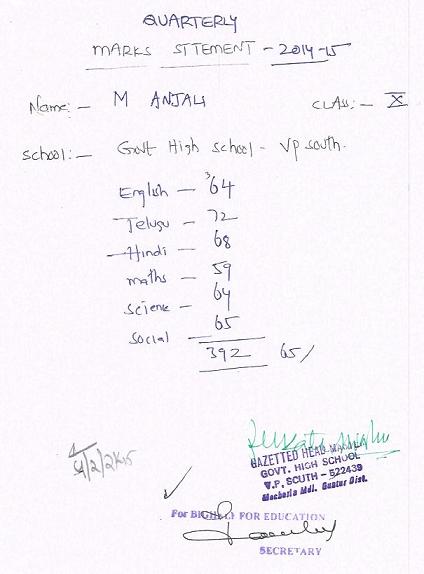 QUARTERLY
MARKS STTEMENT - 2014-15
Name:- M ANJALI CLASS:- X
School:- Govt High school - VP south.
English - 64
Telugu - 72
Hindi - 68
maths - 59
science - 64
social - 65
392 65/
GAZETTED HEAD
GOVT. HIGH SCHOOL
V.P. SOUTH - 522439
Macherla Mdl. Guntur Dist.
For FOR EDUCATION
SECRETARY